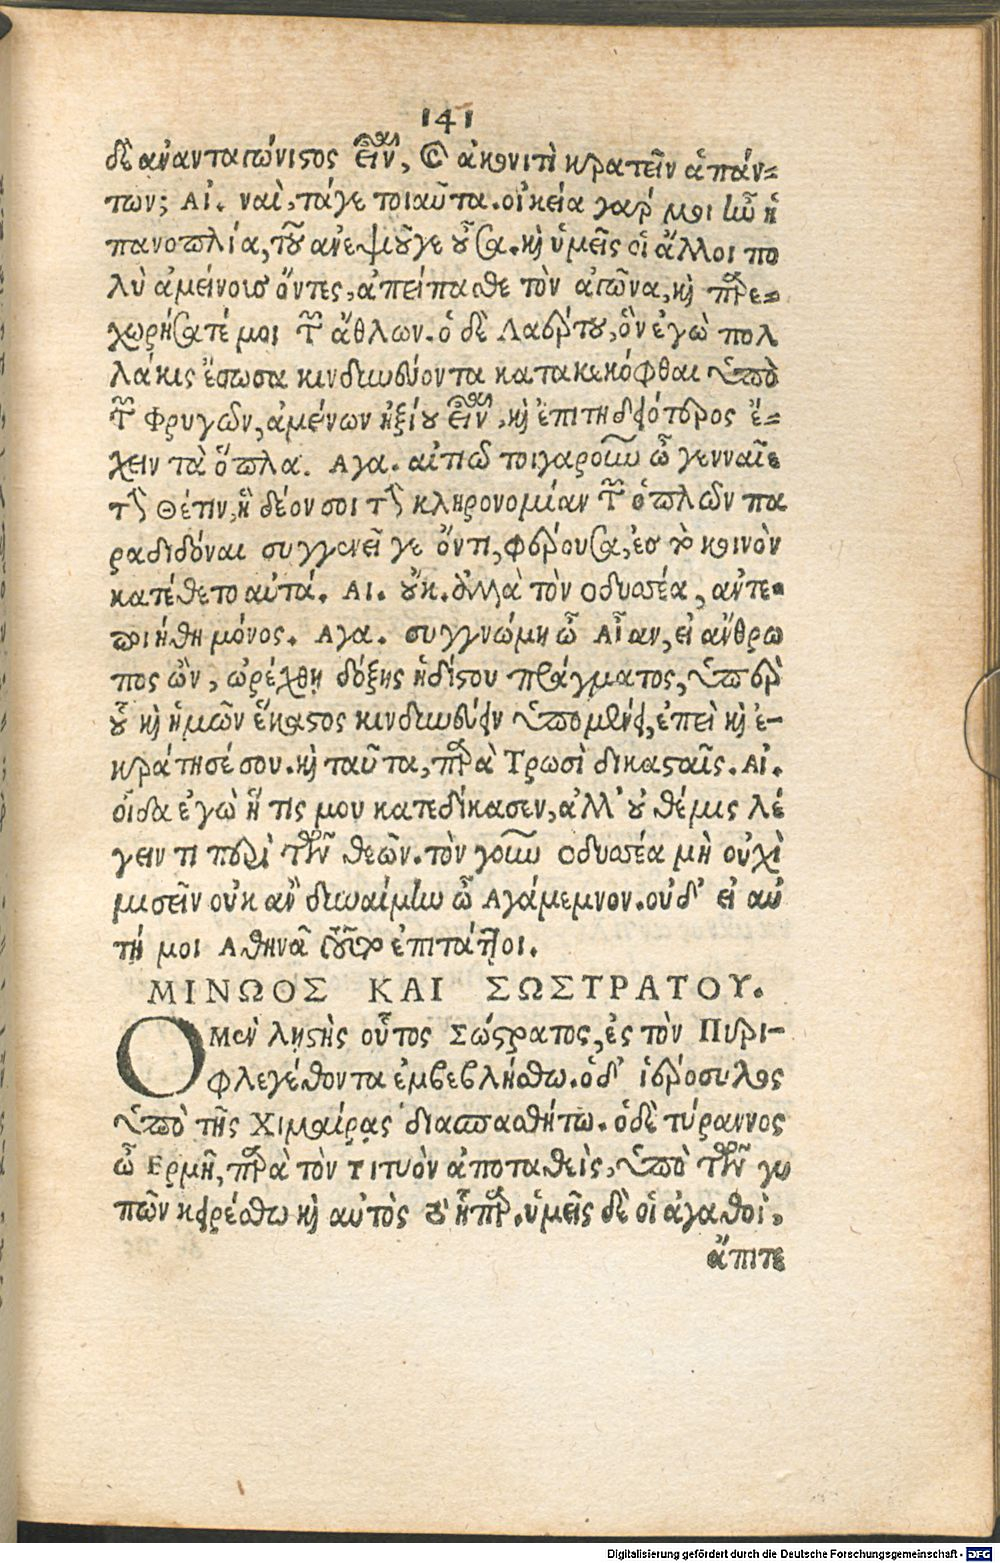 141
δὲ ἀνανταγώνιστος εἶναι, καὶ ἀκονιτὶ κρατεῖν ἁπάν-
των; ΑΙ. ναὶ, τάγε τοιαῦτα. οἰκεία γάρ μοι ἦν ἡ
πανοπλία, τοῦ ἀνεψιοῦγε οὖσα. καὶ ὑμεῖς οἱ ἄλλοι πο
λὺ ἀμείνους ὄντες, ἀπείπασθε τὸν ἀγῶνα, καὶ παρε-
χωρήσατέ μοι τῶν ἄθλων. ὁ δὲ Λαέρτου, ὃν ἐγὼ πολ
λάκις ἔσωσα κινδυνεύοντα κατακεκόφθαι ὑπὸ
τῶν Φρυγῶν, ἀμείνων ἠξίου εἶναι, καὶ ἐπιτηδειότερος ἔ-
χειν τὰ ὅπλα. Αγα. αἰτιῶ τοιγαροῦν ὦ γενναῖε
τὴν Θέτιν, ἣ δέον σοι τὴν κληρονομίαν τῶν ὅπλων πα
ραδιδόναι συγγενεῖ γε ὄντι, φέρουσα, ἐς τὸ κοινὸν
κατέθετο αὐτά. ΑΙ. οὔκ. ἀλλὰ τὸν Οδυσσέα, ἀντε-
ποιήθη μόνος. Αγα. συγγνώμη ὦ Αἶαν, εἰ ἄνθρω
πος ὢν, ὠρέχθη δόξης ἡδίστου πράγματος, ὑπὲρ
οὗ καὶ ἡμῶν ἕκαστος κινδυνεύειν ὑπομένει, ἐπεὶ καὶ ἐ-
κράτησέ σου. καὶ ταῦτα, παρὰ Τρωσὶ δικασταῖς. ΑΙ.
οἶδα ἐγὼ ἥ τις μου κατεδίκασεν, ἀλλ' οὐ θέμις λέ
γειν τι περὶ τῶν θεῶν. τὸν γοῦν Οδυσσέα μὴ οὐχὶ
μισεῖν οὐκ ἂν δυναίμην ὦ Αγάμεμνον. οὐδ' εἰ αὐ
τή μοι Αθηνᾶ τοῦτο ἐπιτάττοι.
ΜΙΝΩΟΣ ΚΑΙ ΣΩΣΤΡΑΤΟΥ.
Ο Μὲν λῃστὴς οὗτος Σώστρατος, ἐς τὸν Πυρι-
φλεγέθοντα ἐμβεβλήσθω. ὁδ' ἱερόσυλος
ὑπὸ τῆς Χιμαίρας διασπασθήτω. ὁδὲ τύραννος
ὦ Ερμῆ, παρὰ τὸν Τιτυὸν ἀποταθεὶς, ὑπὸ τῶν γυ
πῶν κειρέσθω καὶ αὐτὸς τὸ ἧπαρ. ὑμεῖς δὲ οἱ ἀγαθοὶ.
ἄπιτε
Digitalisierung gefördert durch die Deutsche Forschungsgemeinschaft - DFG